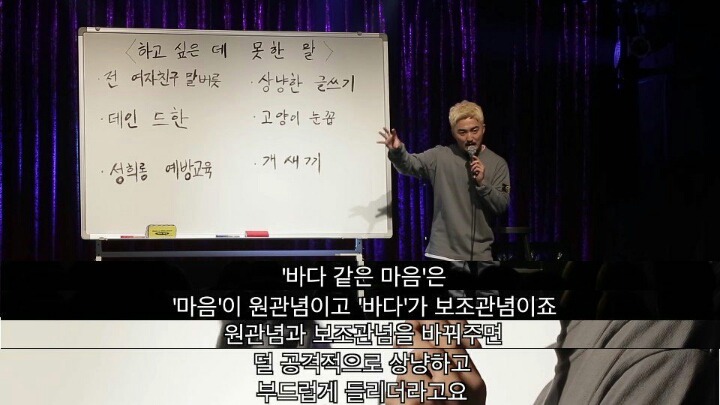 <하고 싶은 데 못한 말>
· 전 여자친구 말버릇
· 데인 드한
· 성희롱 예방교육
· 상냥한 글쓰기
· 고양이 눈꼽
· 개새끼
'바다 같은 마음'은
'마음'이 원관념이고 '바다'가 보조관념이죠
원관념과 보조관념을 바꿔주면
덜 공격적으로 상냥하고
부드럽게 들리더라고요